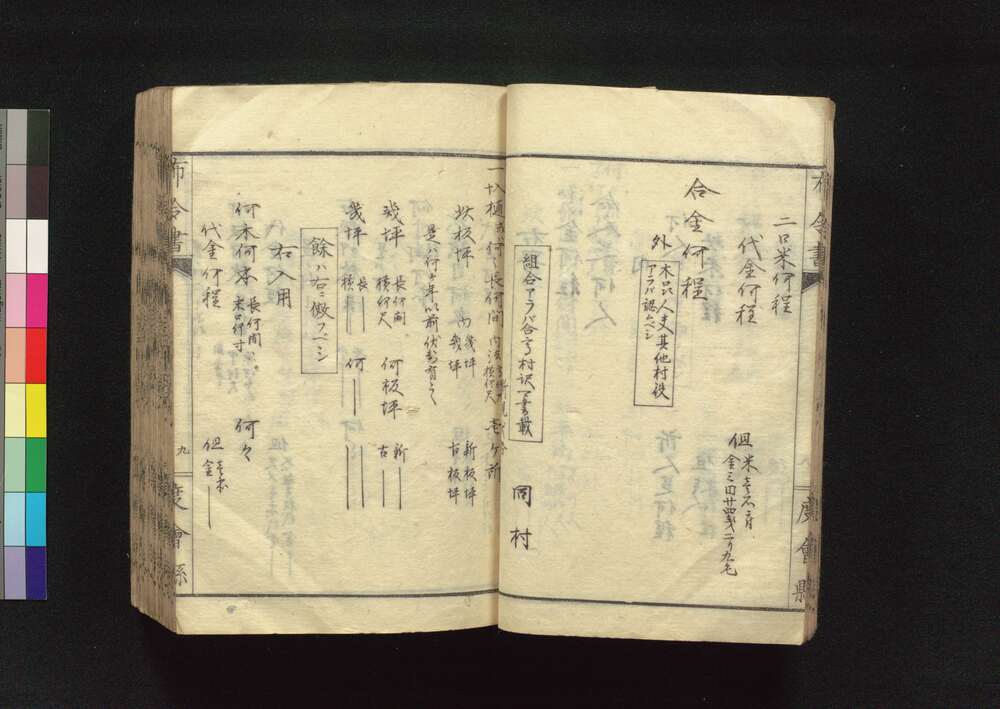 布令書
度會縣
二口米何程
代金何程
但米壱石ニ付
金三円廿四銭二り九毛
合金何程
外
木品人夫其他村役
アラバ認ムベシ
同村
組合アラバ合高村訳可書載
一圦樋
長何間
壱ヶ所
此板坪
内
幾坪
幾坪
新板坪
古板坪
是ハ何ヶ年以前伏替有之
幾坪
長何間
横何尺
何板坪
新
古
幾坪
長
横
何
餘ハ右ニ傚フベシ
右入用
何木何本
長何間
末口何寸
何々
代金何程
但壱本
金
布令書
九
度會縣